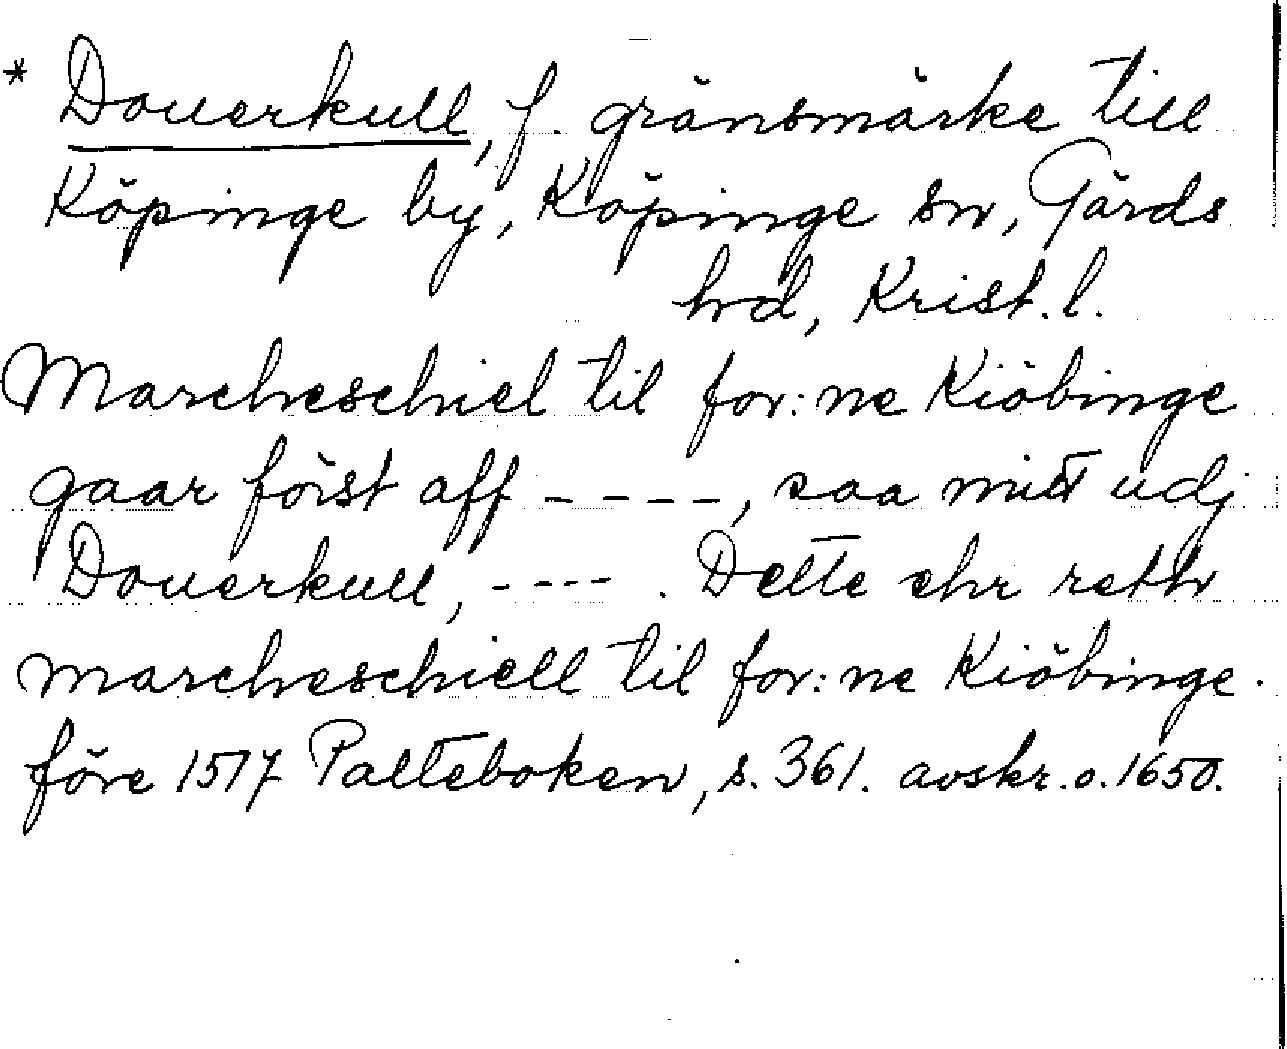 * Douerkull, f. gränsmärke till
Köpinge by, Köpinge sn, Gärds
hd, Krist. l.
Marcheschiel til for:ne Kiöbinge
gaar föist aff ----, saa mitt udj
Douerkull, ----. Dette ehr reth
marcheschiell til for:ne Kiöbinge.
före 1517 Palteboken, s. 361. avskr. o. 1650.